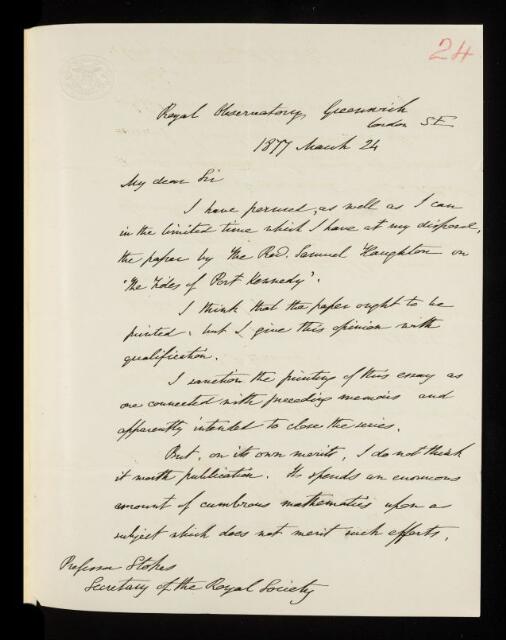 24
Royal Observatory, Greenwich
London SE
1877 March 24
My dear Sir
I have perused, as well as I can
in the limited time which I have at my disposal,
the paper by the Rev. Samuel Haughton on
"The Tides of Port Kennedy".
I think that the paper ought to be
printed, but I give this opinion with
qualification.
I sanction the printing of this essay as
one connected with preceding memoirs and
apparently intended to close the series.
But, on its own merits, I do not think
it worth publication. He spends an enormous
amount of cumbrous mathematics upon a
subject which does not merit such efforts.
Professor Stokes
Secretary of the Royal Society